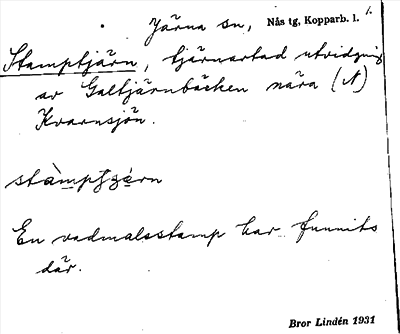 Järna sn, Nås tg, Kopparb. l. 1.
Stamptjärn, tjärnartad utvidgnig
av Galtjärnbäcken nära (N)
Kvarnsjön.
En vadmalsstamp har funnits
där.
Bror Lindén 1931